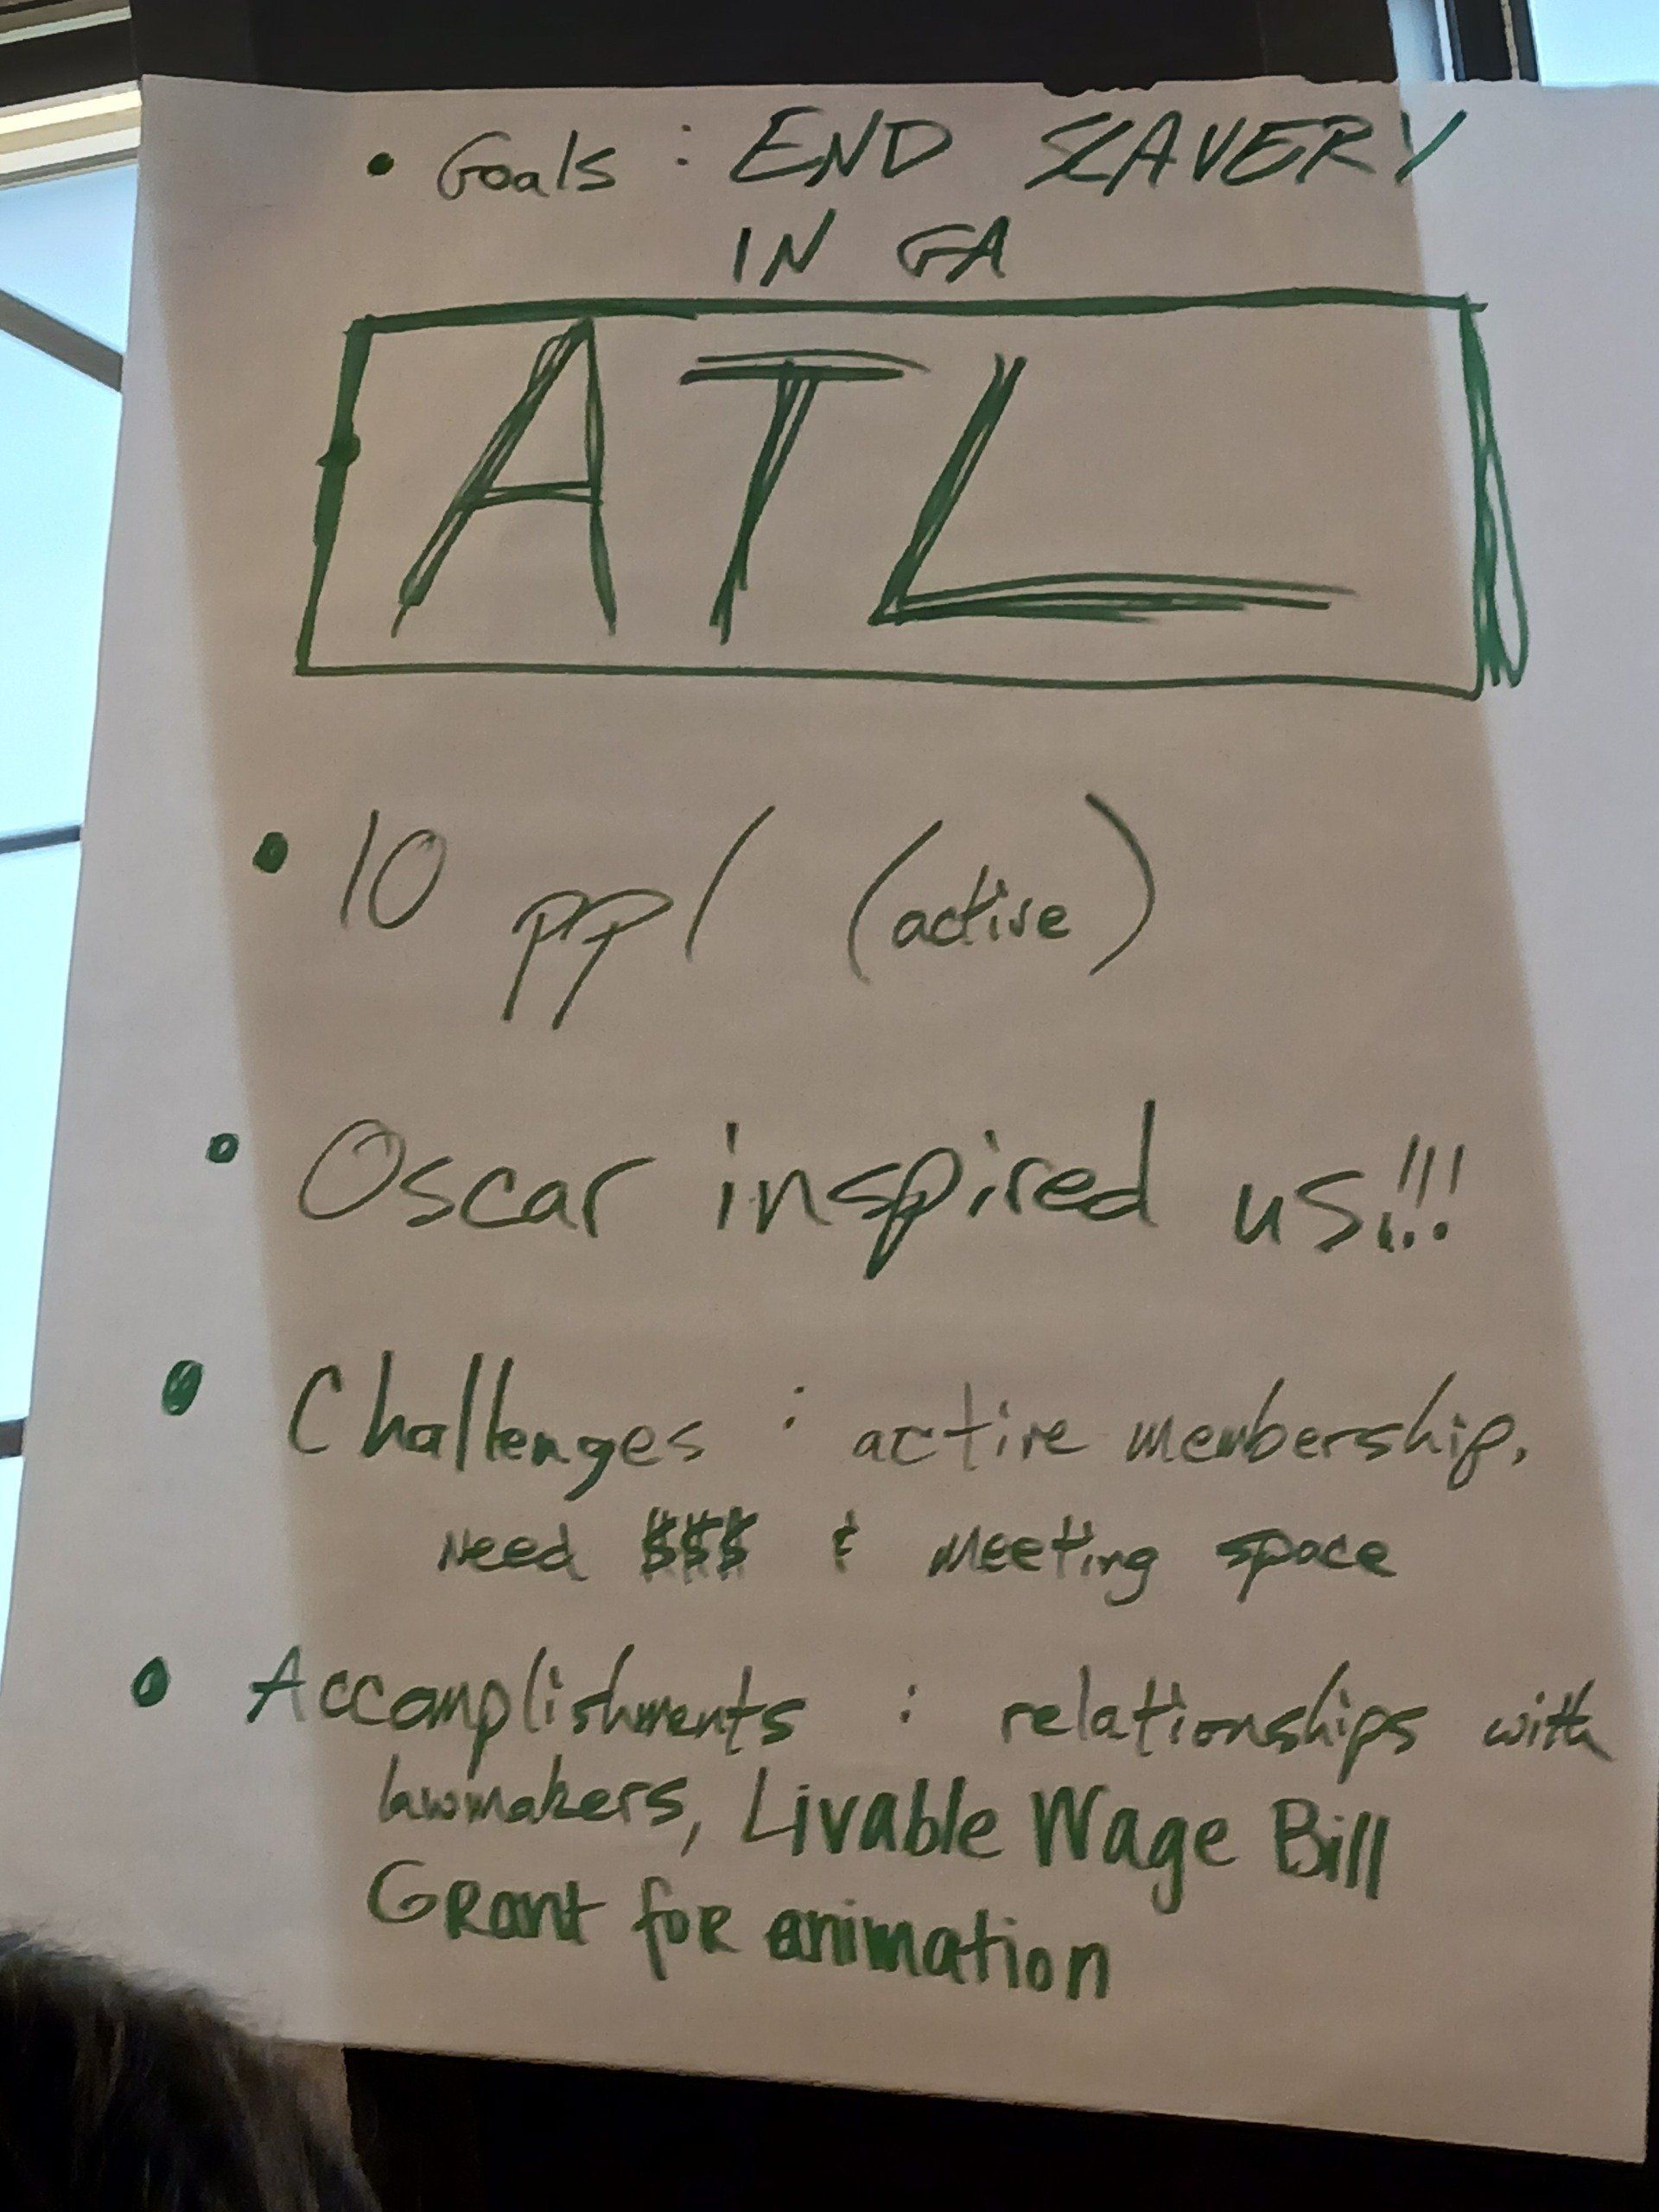 • Goals : END SLAVERY
IN GA
ATL
• 10 ppl (active)
• Oscar inspired us!!!
• Challenges : active membership,
Need $$$ & Meeting space
• Accomplishments : relationships with
lawmakers, Livable Wage Bill
Grant for animation